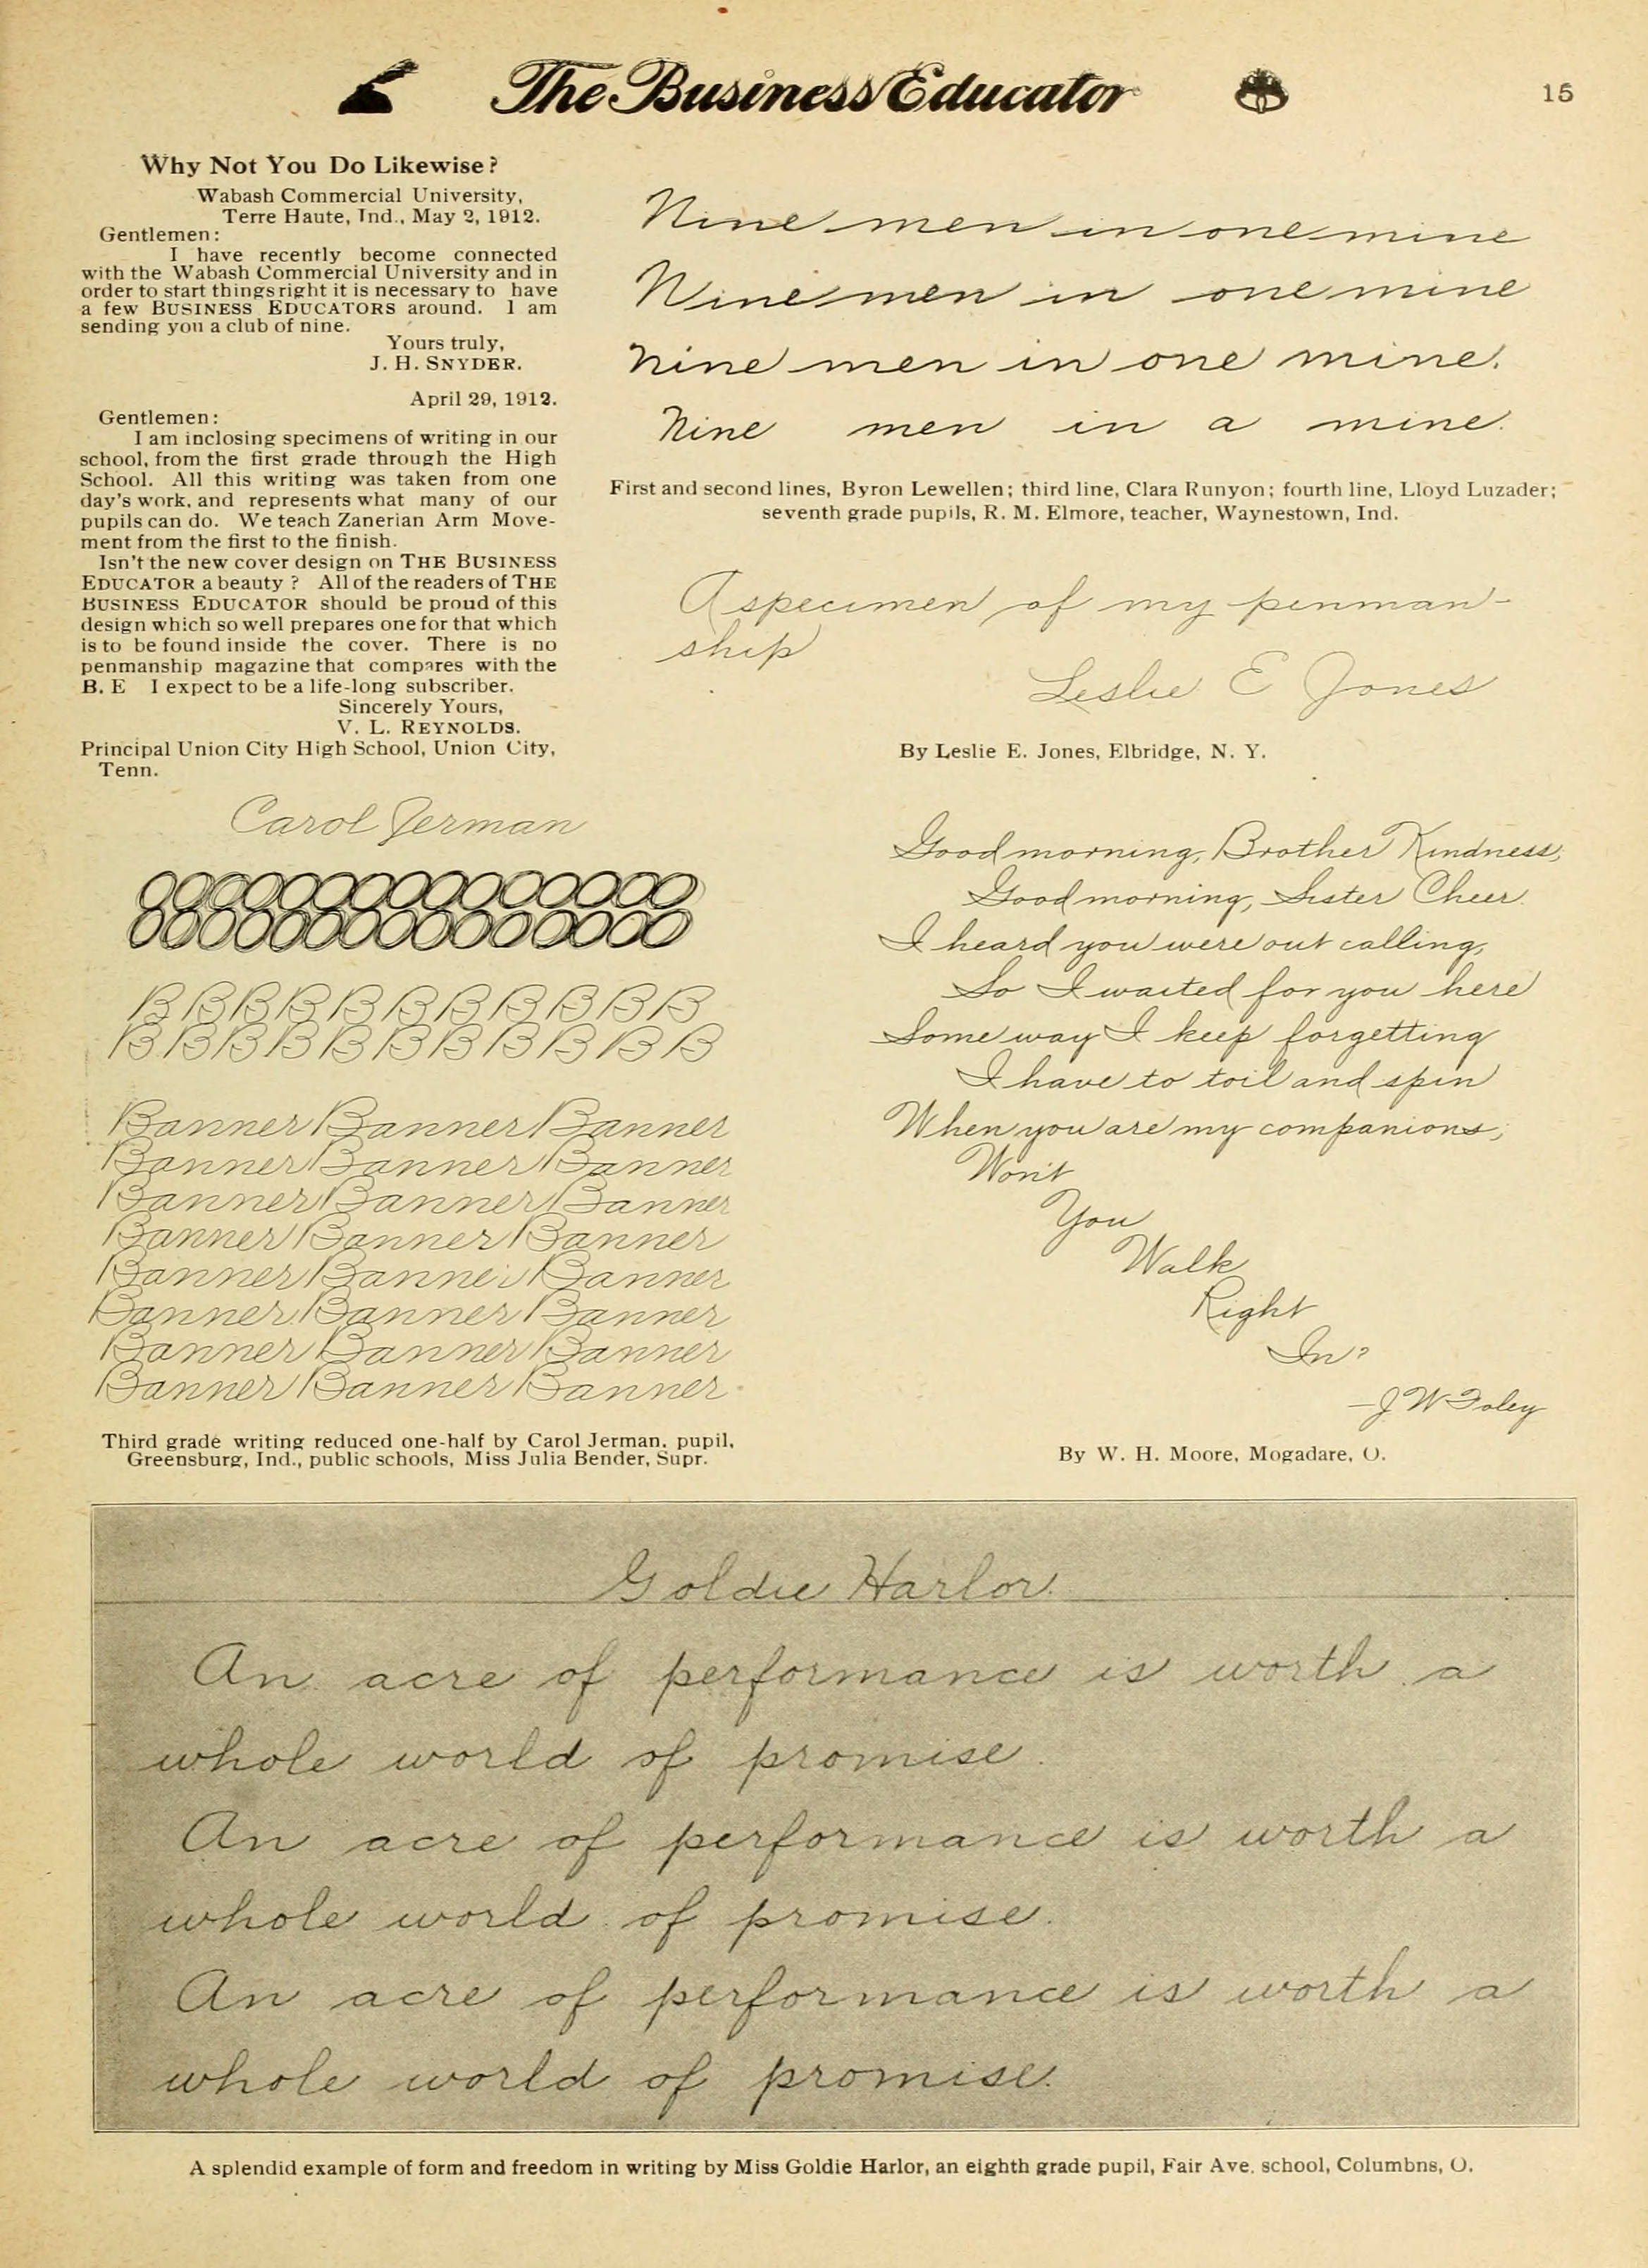 The Business Educator
15
Why Not You Do Likewise?
Wabash Commercial University,
Terre Haute, Ind., May 2, 1912.
Gentlemen:
I have recently become connected
with the Wabash Commercial University and in
order to start things right it is necessary to have
a few BUSINESS EDUCATORS around. I am
sending you a club of nine.
Yours truly,
J. H. SNYDER.
April 29, 1912.
Gentlemen:
I am inclosing specimens of writing in our
school, from the first grade through the High
School. All this writing was taken from one
day's work, and represents what many of our
pupils can do. We teach Zanerian Arm Move-
ment from the first to the finish.
Isn't the new cover design on THE BUSINESS
EDUCATOR a beauty? All of the readers of THE
BUSINESS EDUCATOR should be proud of this
design which so well prepares one for that which
is to be found inside the cover. There is no
penmanship magazine that compares with the
B. E I expect to be a life-long subscriber.
Sincerely Yours,
V. L. REYNOLDS.
Principal Union City High School, Union City,
Tenn.
Nine men in one mine
Nine men in one mine
Nine men in one mine.
Nine men in a mine.
First and second lines, Byron Lewellen; third line, Clara Runyon; fourth line, Lloyd Luzader;
seventh grade pupils, R. M. Elmore, teacher, Waynestown, Ind.
A specimen of my penman-
ship
Leslie E Jones
By Leslie E. Jones, Elbridge, N. Y.
Carol Jerman
B B B B B B B B B B B
B B B B B B B B B B B
Banner Banner Banner
Banner Banner Banner
Banner Banner Banner
Banner Banner Banner
Banner Banner Banner
Banner Banner Banner
Banner Banner Banner
Banner Banner Banner
Third grade writing reduced one-half by Carol Jerman, pupil,
Greensburg, Ind., public schools, Miss Julia Bender, Supr.
Good morning, Brother Kindness,
Good morning, Sister Cheer.
I heard you were out calling,
So I waited for you here
Some way I keep forgetting
I have to toil and spin
When you are my companions,
Won't
You
Walk
Right
In?
—J W Foley
By W. H. Moore, Mogadare, O.
Goldie Harlor.
An acre of performance is worth a
whole world of promise.
An acre of performance is worth a
whole world of promise.
An acre of performance is worth a
whole world of promise.
A splendid example of form and freedom in writing by Miss Goldie Harlor, an eighth grade pupil, Fair Ave. school, Columbns, O.